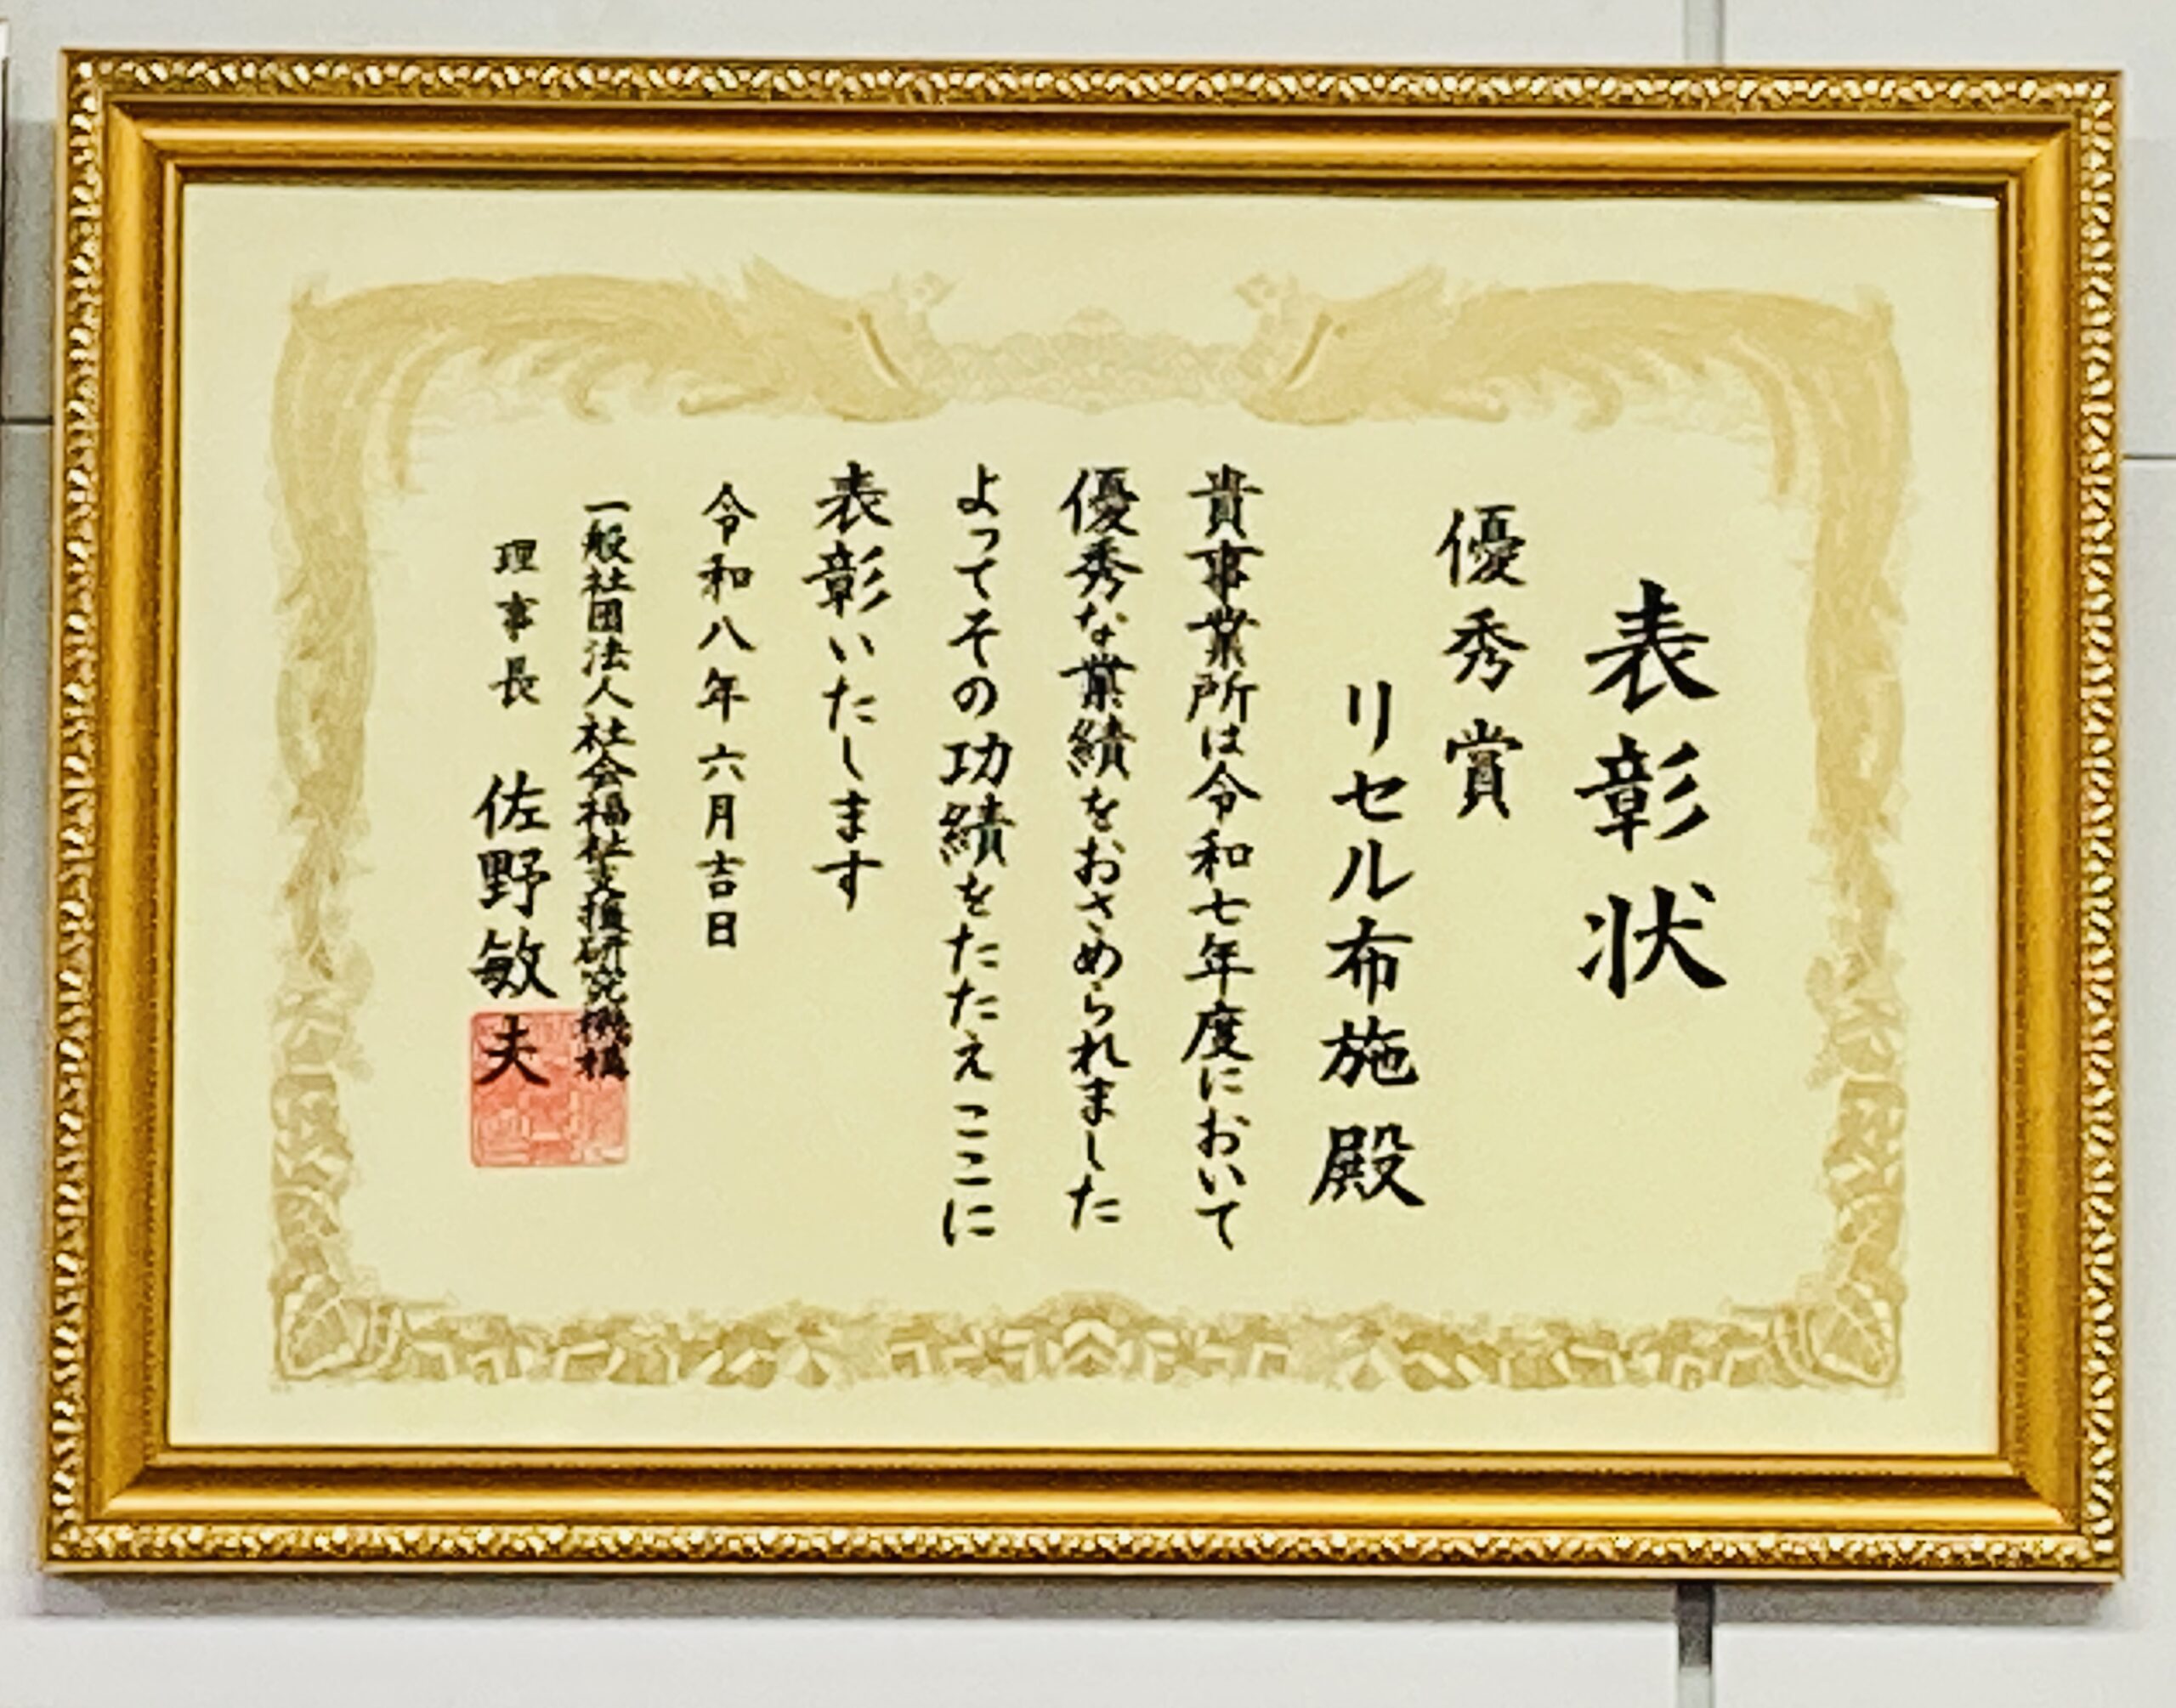 表彰状
優秀賞
リセル布施 殿
貴事業所は令和七年度において
優秀な業績をおさめられました
よってその功績をたたえここに
表彰いたします
令和八年六月吉日
一般社団法人社会福祉支援研究機構
理事長 佐野敏夫